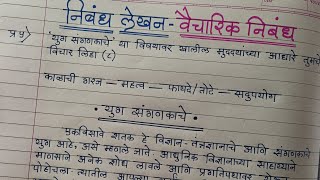 निबंध लेखन - वैचारिक निबंध
प्र ५) 'युग संगणकाचे' या विषयावर खालील मुद्दयांच्या आधारे तुमचे
विचार लिहा (८)
काळाची गरज - महत्व - फायदे/तोटे - सदुपयोग
युग संगणकाचे
एकविसावे शतक हे विज्ञान-तंत्रज्ञानाचे आणि संगणकाचे
युग आहे, असे म्हणले जाते. आधुनिक विज्ञानाच्या साहाय्याने
माणसाने अनेक शोध लावले आणि प्रगतिपथावर
पोहोचला त्यातील आपल्या